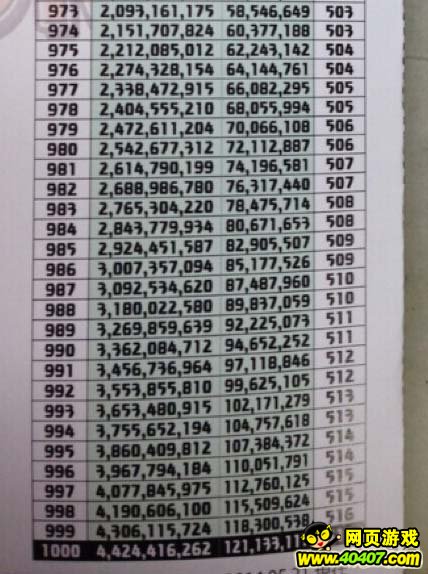 973 2,093,161,175 58,546,649 503
974 2,151,707,824 60,377,188 503
975 2,212,085,012 62,243,142 504
976 2,274,328,154 64,144,761 504
977 2,338,472,915 66,082,295 505
978 2,404,555,210 68,055,994 505
979 2,472,611,204 70,066,108 506
980 2,542,677,312 72,112,887 506
981 2,614,790,199 74,196,581 507
982 2,688,986,780 76,317,440 507
983 2,765,304,220 78,475,714 508
984 2,843,779,934 80,671,653 508
985 2,924,451,587 82,905,507 509
986 3,007,357,094 85,177,526 509
987 3,092,534,620 87,487,960 510
988 3,180,022,580 89,837,059 510
989 3,269,859,639 92,225,073 511
990 3,362,084,712 94,652,252 511
991 3,456,736,964 97,118,846 512
992 3,553,855,810 99,625,105 512
993 3,653,480,915 102,171,279 513
994 3,755,652,194 104,757,618 513
995 3,860,409,812 107,384,372 514
996 3,967,794,184 110,051,791 514
997 4,077,845,975 112,760,125 515
998 4,190,606,100 115,509,624 515
999 4,306,115,724 118,300,538 516
1000 4,424,416,262
网页游戏
www.40407.com